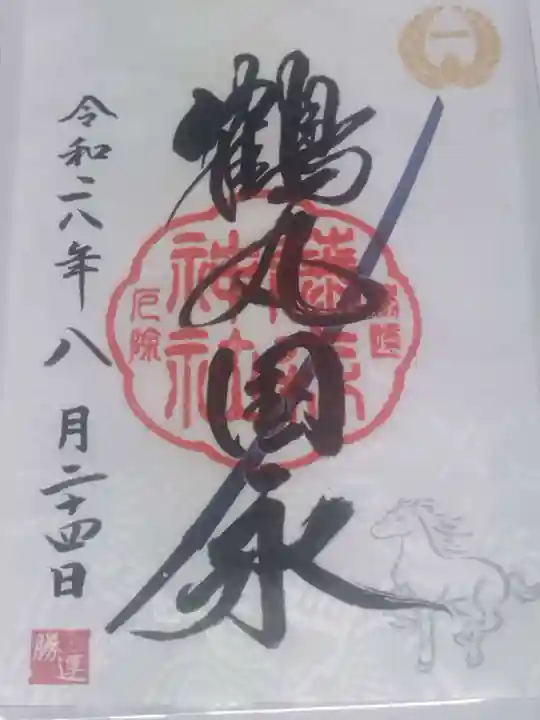 鶴丸国永
勝運
藤森
神社
厄除
令和六年八月二十四日
勝運
一